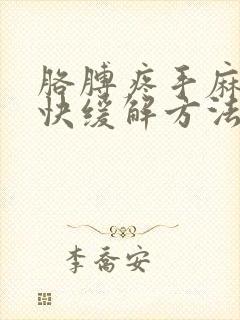 胳膊疼手麻
快缓解方法
李乔安